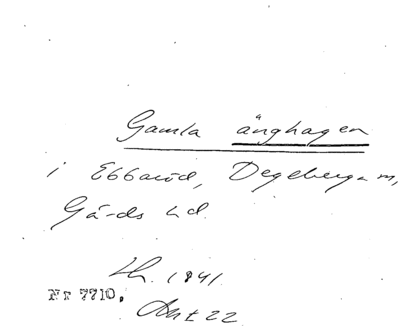 Gamla änghagen
i Ebbaröd, Degeberga m,
Gärds hd.
1941.
Nr 7710.
22